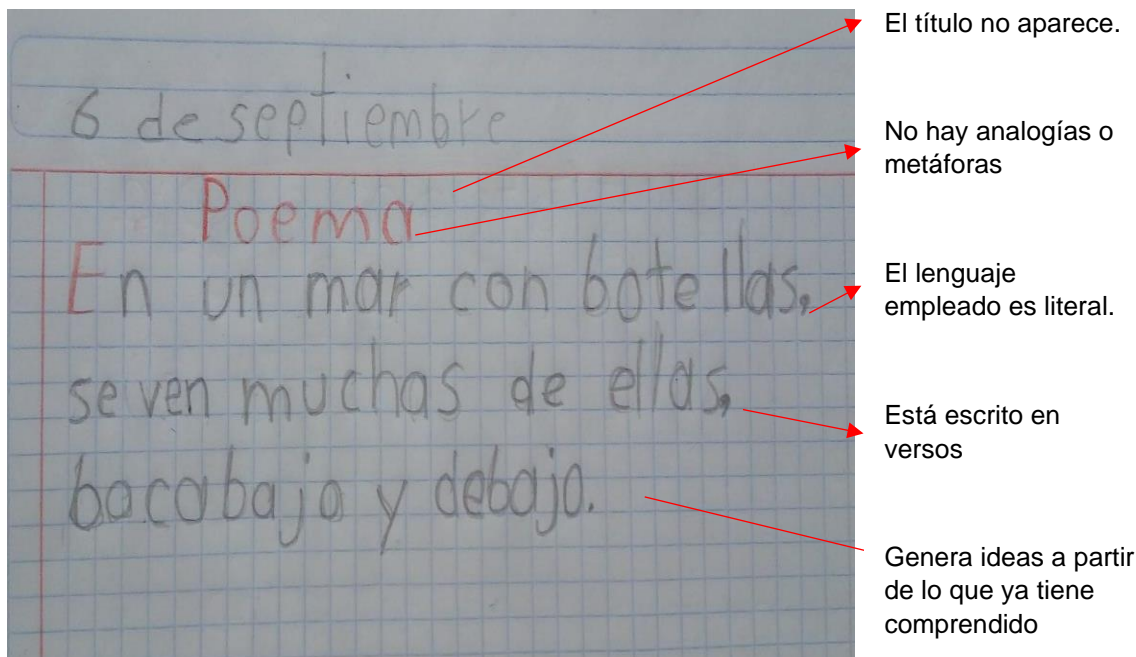 6 de septiembre
Poema
En un mar con botellas,
se ven muchas de ellas,
bocabajo y debajo.
El título no aparece.
No hay analogías o
metáforas
El lenguaje
empleado es literal.
Está escrito en
versos
Genera ideas a partir
de lo que ya tiene
comprendido